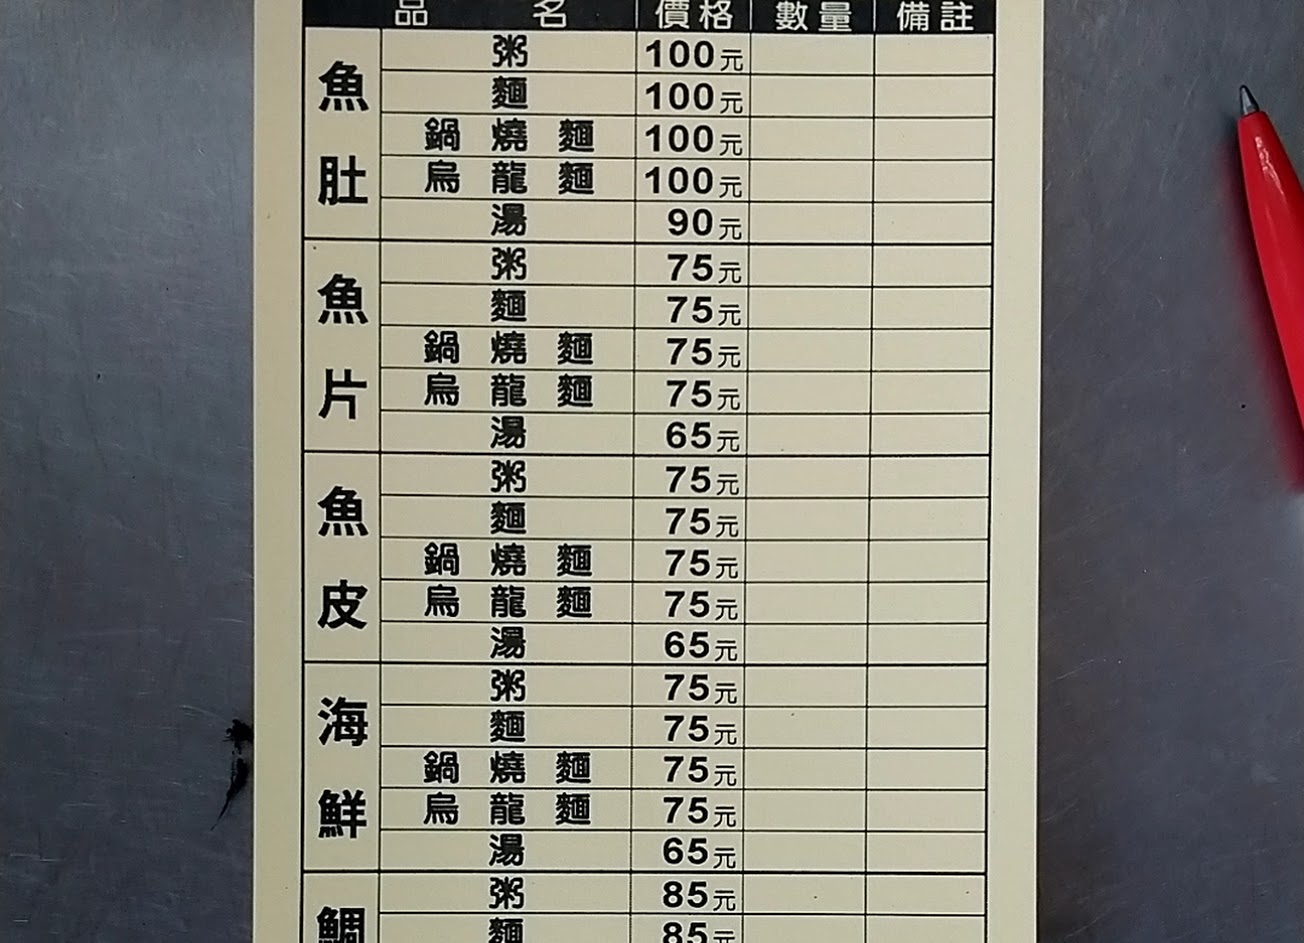 品名 價格 數量 備註
魚肚
粥 100元
麵 100元
鍋燒麵 100元
烏龍麵 100元
湯 90元
魚片
粥 75元
麵 75元
鍋燒麵 75元
烏龍麵 75元
湯 65元
魚皮
粥 75元
麵 75元
鍋燒麵 75元
烏龍麵 75元
湯 65元
海鮮
粥 75元
麵 75元
鍋燒麵 75元
烏龍麵 75元
湯 65元
鯛
粥 85元
麵 85元